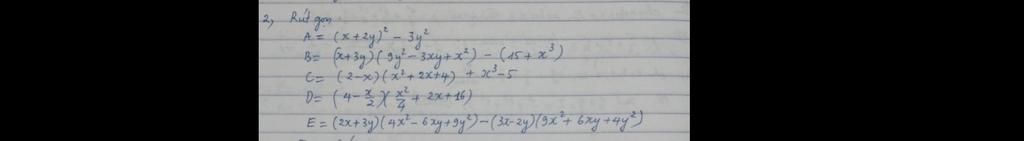 2, Rút gọn
A = (x+2y)² - 3y²
B = (x+3y)(9y² - 3xy + x²) - (15 + x³)
C = (2-x)(x² + 2x+4) + x³-5
D = (4 - x/2)(x²/4 + 2x+16)
E = (2x+3y)(4x² - 6xy+9y²) - (3x-2y)(9x² + 6xy +4y²)